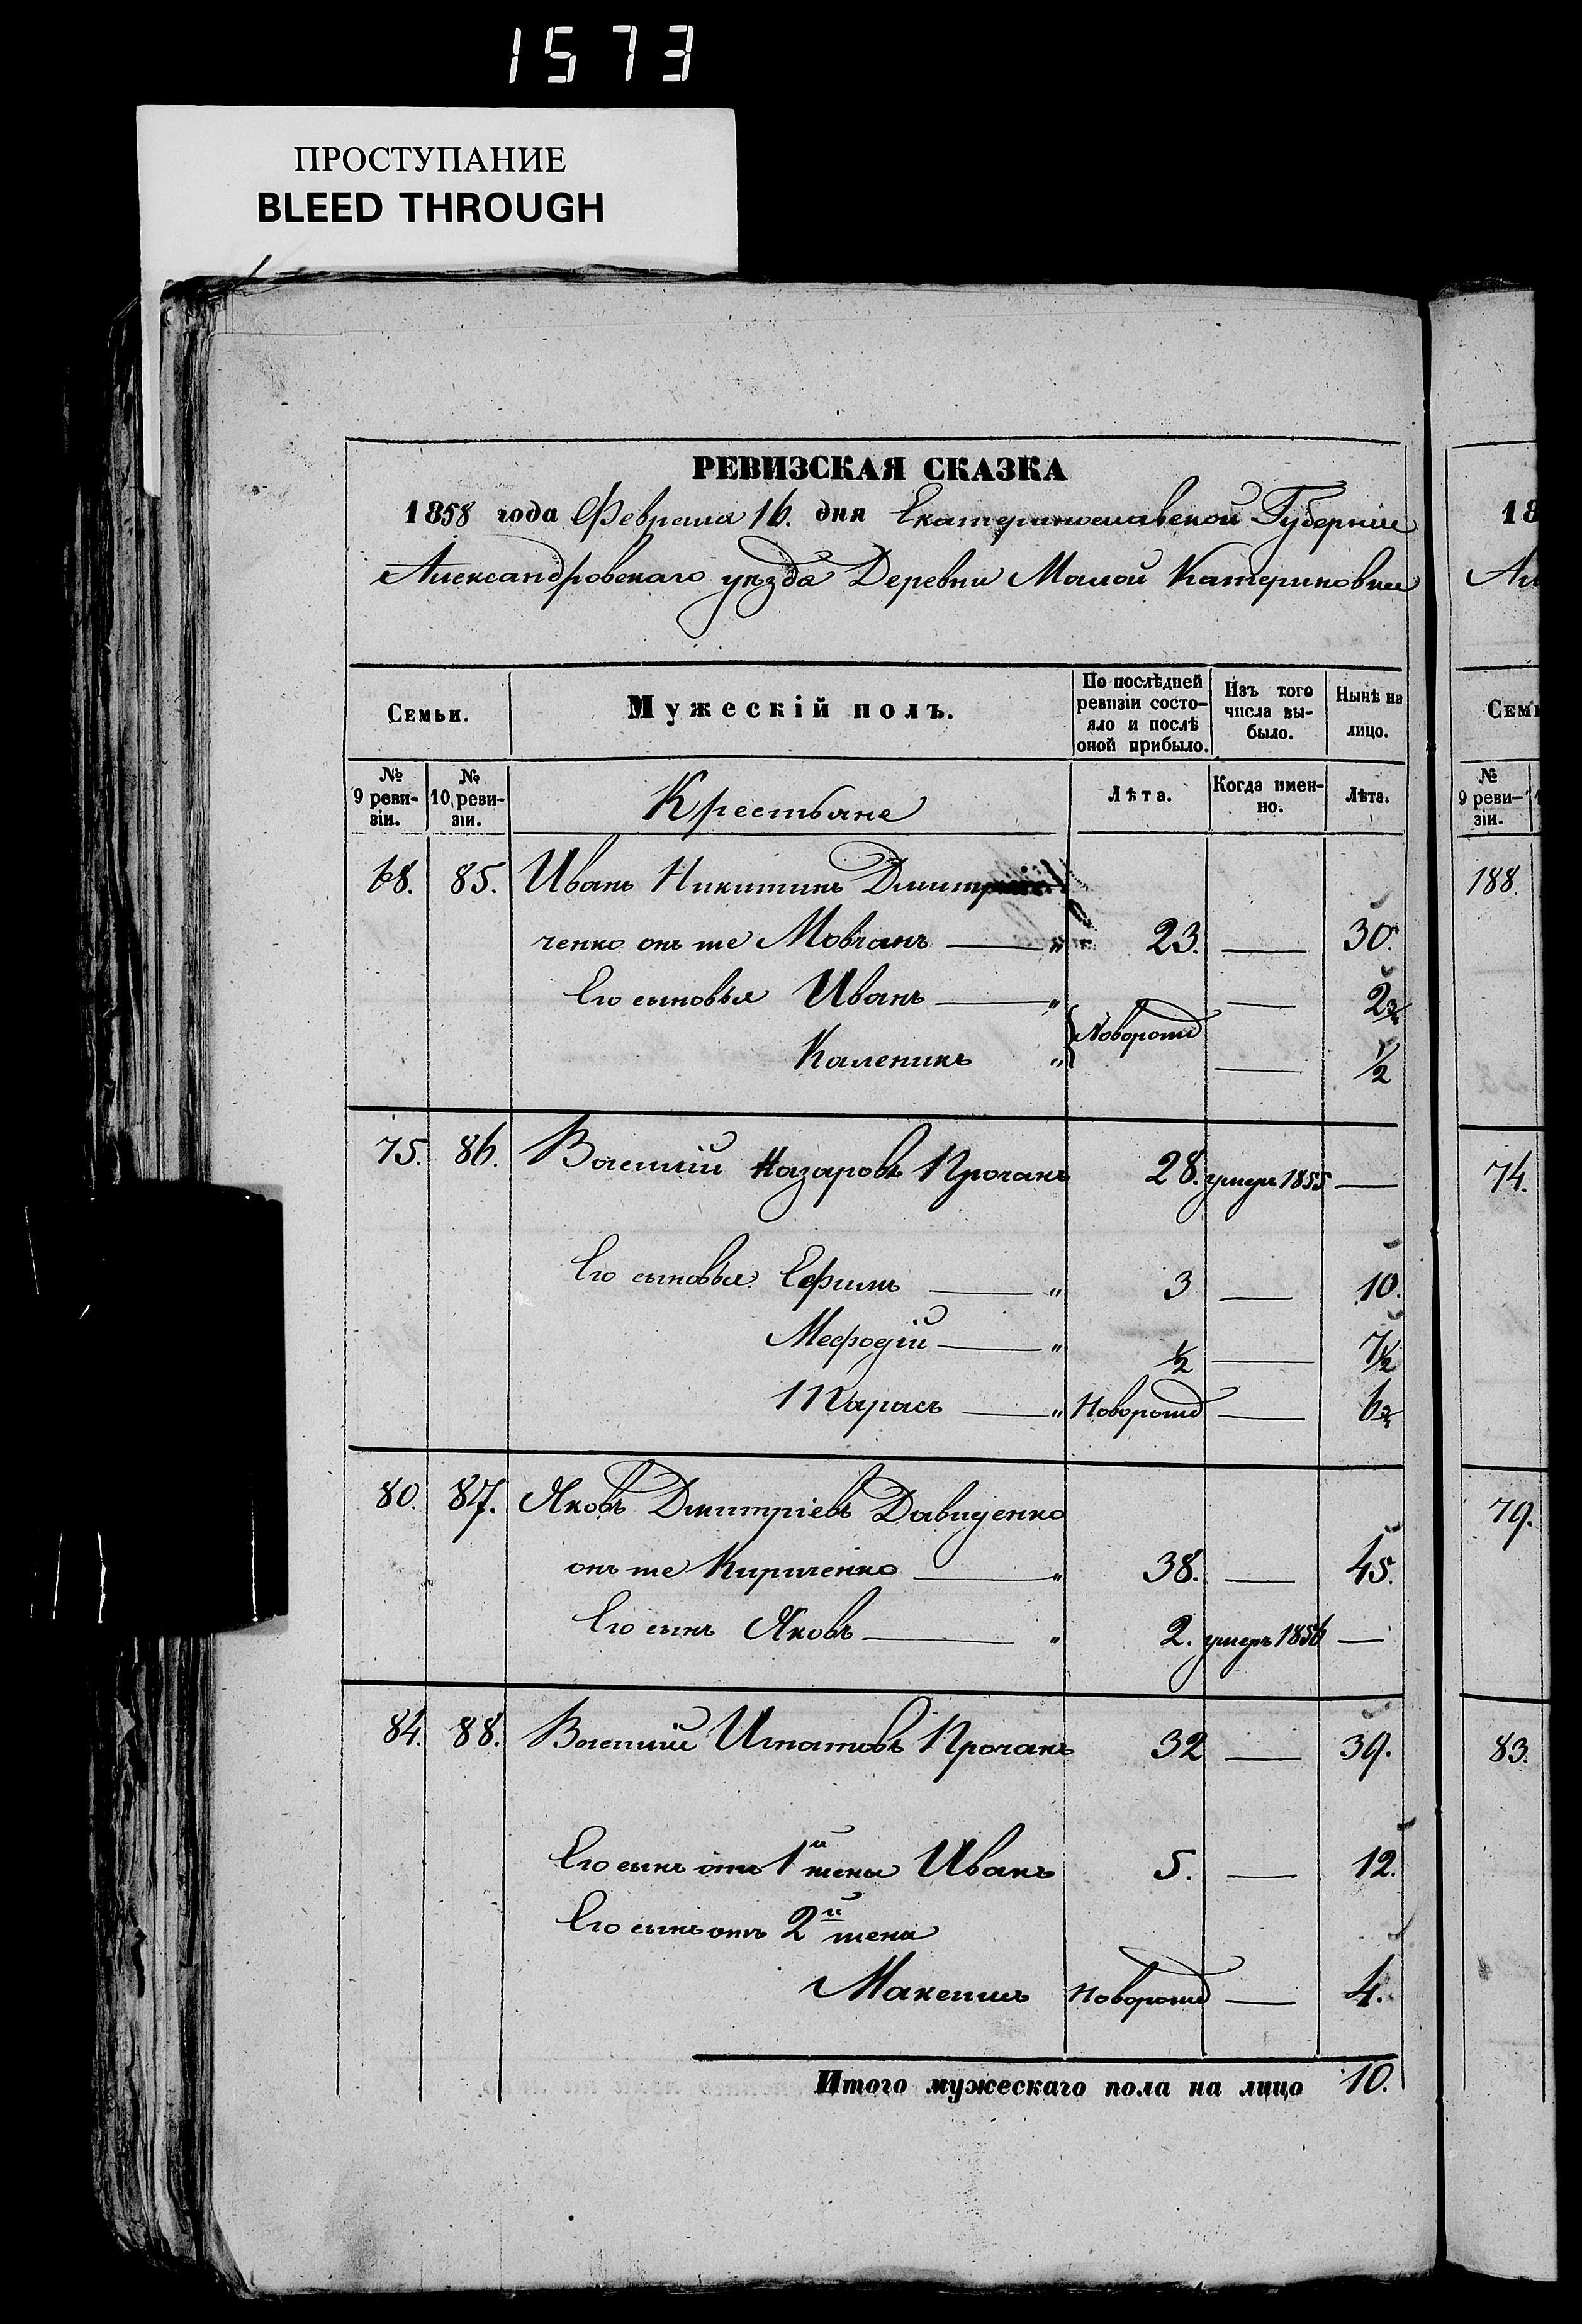 1573
ПРОСТУПАНИЕ
BLEED THROUGH
РЕВИЗСКАЯ СКАЗКА
1858 года Февраля 16. дня Екатеринославской Губерніи
Александровскаго уѣзда Деревни Малой Катериновки
Семьи.
Мужескій полъ.
По послѣдней ревизіи состояло и послѣ оной прибыло.
Изъ того числа вы-было.
Нынѣ на лицо.
№ 9 реви-зіи.
№ 10 реви-зіи.
Крестьяне
Лѣта.
Когда имен-но.
Лѣта.
68. 85. Иванъ Никитинъ Дмитри
ченко онъ же Мовчанъ — " 23. — 30.
Его сыновья Иванъ — " Новорожд — 2¾
Каленикъ " — ½
75. 86. Василій Назаровъ Прочанъ 28. умеръ 1855 —
Его сыновья Ефимъ — " 3 — 10.
Мефодій — " ½ — 7½
Тарасъ — " Новорожд — 6¾
80. 87. Яковъ Дмитріевъ Давиденко
онъ же Кириченко — " 38. — 45.
Его сынъ Яковъ — " 2. умеръ 1856 —
84. 88. Василій Игнатовъ Прочанъ 32 — 39.
Его сынъ отъ 1й жены Иванъ 5. — 12.
Его сынъ отъ 2й жены
Максимъ Новорожд — 4.
Итого мужескаго пола на лицо 10.
18
Ал
Семь
№ 9 реви-зіи.
188.
74.
79.
83.